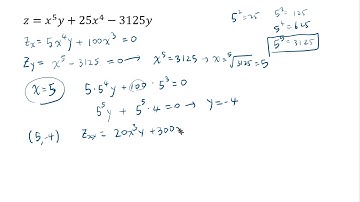 z = x⁵y + 25x⁴ − 3125y
5² = 25 5³ = 125
5⁴ = 625
5⁵ = 3125
Zx = 5x⁴y + 100x³ = 0
Zy = x⁵ − 3125 = 0 → x⁵ = 3125 → x = ⁵√3125 = 5
x = 5 5·5⁴y + 100·5³ = 0
5⁵y + 5⁵·4 = 0 → y = −4
(5, −4) Zxx = 20x³y + 300x